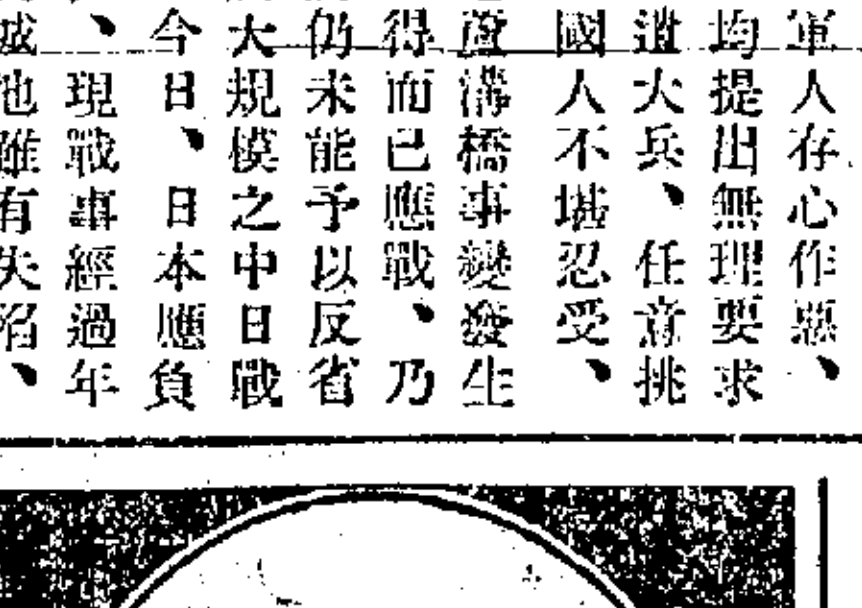 軍人存心作惡、
均提出無理要求
遣大兵、任意挑
國人不堪忍受、
蘆溝橋事變發生
得而已應戰、乃
仍未能予以反省
大規模之中日戰
今日、日本應負
、現戰事經過年
城池雖有失陷、